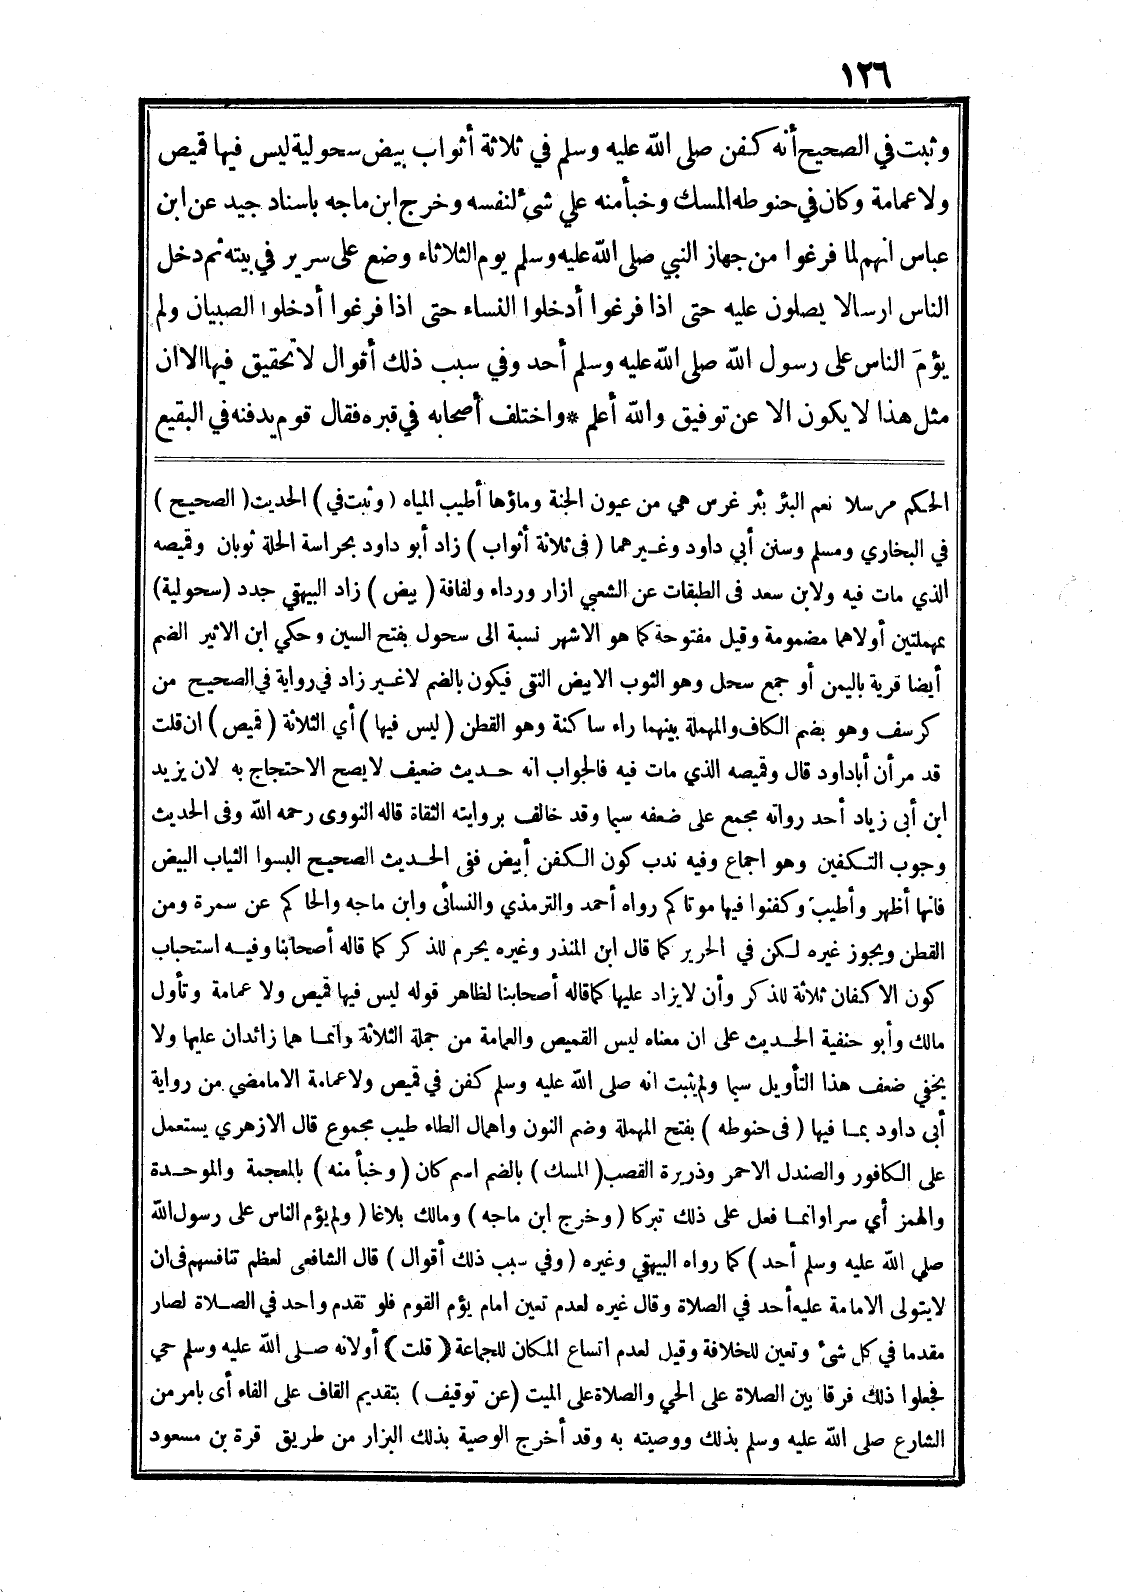 ١٢٦
وثبت في الصحيح أنه كفن صلى الله عليه وسلم في ثلاثة أثواب بيض سحولية ليس فيها قميص
ولا عمامة وكان في حنوطه المسك وخبأ منه علي شئ لنفسه وخرج ابن ماجه باسناد جيد عن ابن
عباس انهم لما فرغوا من جهاز النبي صلى الله عليه وسلم يوم الثلاثاء وضع على سرير في بيته ثم دخل
الناس ارسالا يصلون عليه حتى اذا فرغوا أدخلوا النساء حتى اذا فرغوا أدخلوا الصبيان ولم
يؤم الناس على رسول الله صلى الله عليه وسلم أحد وفي سبب ذلك أقوال لا تحقيق فيها الا ان
مثل هذا لا يكون الا عن توفيق والله أعلم * واختلف أصحابه في قبره فقال قوم يدفنه في البقيع
الحكم مرسلا نعم البئر بئر غرس هي من عيون الجنة وماؤها أطيب المياه (وثبت في) الحديث (الصحيح)
في البخاري ومسلم وسنن أبي داود وغيرهما (فى ثلاثة أثواب) زاد أبو داود بحراسة الحلة ثوبان وقميصه
الذي مات فيه ولابن سعد فى الطبقات عن الشعبي ازار ورداء ولفافة (بيض) زاد البيهقي جدد (سحولية)
بمهملتين أولاهما مضمومة وقيل مفتوحة كما هو الاشهر نسبة الى سحول بفتح السين وحكي ابن الاثير الضم
أيضا قرية باليمن أو جمع سحل وهو الثوب الابيض النقى فيكون بالضم لاغير زاد في رواية في الصحيح من
كرسف وهو بضم الكاف والمهملة بينهما راء ساكنة وهو القطن (ليس فيها) أي الثلاثة (قميص) ان قلت
قد مر أن أباداود قال وقميصه الذي مات فيه فالجواب انه حديث ضعيف لا يصح الاحتجاج به لان يزيد
ابن أبى زياد أحد رواته مجمع على ضعفه سيما وقد خالف بروايته الثقاة قاله النووى رحمه الله وفى الحديث
وجوب التكفين وهو اجماع وفيه ندب كون الكفن أبيض ففى الحديث الصحيح البسوا الثياب البيض
فانها أظهر وأطيب وكفنوا فيها موتاكم رواه أحمد والترمذي والنسائى وابن ماجه والحاكم عن سمرة ومن
القطن ويجوز غيره لكن في الحرير كما قال ابن المنذر وغيره يحرم للذكر كما قاله أصحابنا وفيه استحباب
كون الاكفان ثلاثة للذكر وأن لا يزاد عليها كما قاله أصحابنا لظاهر قوله ليس فيها قميص ولا عمامة وتأول
مالك وأبو حنفية الحديث على ان معناه ليس القميص والعمامة من جملة الثلاثة وانما هما زائدان عليها ولا
يخفي ضعف هذا التأويل سيما ولم يثبت انه صلى الله عليه وسلم كفن في قميص ولا عمامة الا مامضي من رواية
أبى داود بما فيها (فى حنوطه) بفتح المهملة وضم النون واهمال الطاء طيب مجموع قال الازهري يستعمل
على الكافور والصندل الاحمر وذريرة القصب (المسك) بالضم اسم كان (وخبأ منه) بالمعجمة والموحدة
والهمز أي سرا وانما فعل على ذلك تبركا (وخرج ابن ماجه) ومالك بلاغا (ولم يؤم الناس على رسول الله
صلي الله عليه وسلم أحد) كما رواه البيهقي وغيره (وفي سبب ذلك أقوال) قال الشافعى لعظم تنافسهم فى ان
لا يتولى الامامة عليه أحد في الصلاة وقال غيره لعدم تعين امام يؤم القوم فلو تقدم واحد في الصلاة لصار
مقدما في كل شئ وتعين للخلافة وقيل لعدم اتساع المكان للجماعة (قلت) أولانه صلى الله عليه وسلم حي
فجعلوا ذلك فرقا بين الصلاة على الحي والصلاة على الميت (عن توقيف) بتقديم القاف على الفاء أى بامر من
الشارع صلى الله عليه وسلم بذلك ووصيته به وقد أخرج الوصية بذلك البزار من طريق قرة بن مسعود